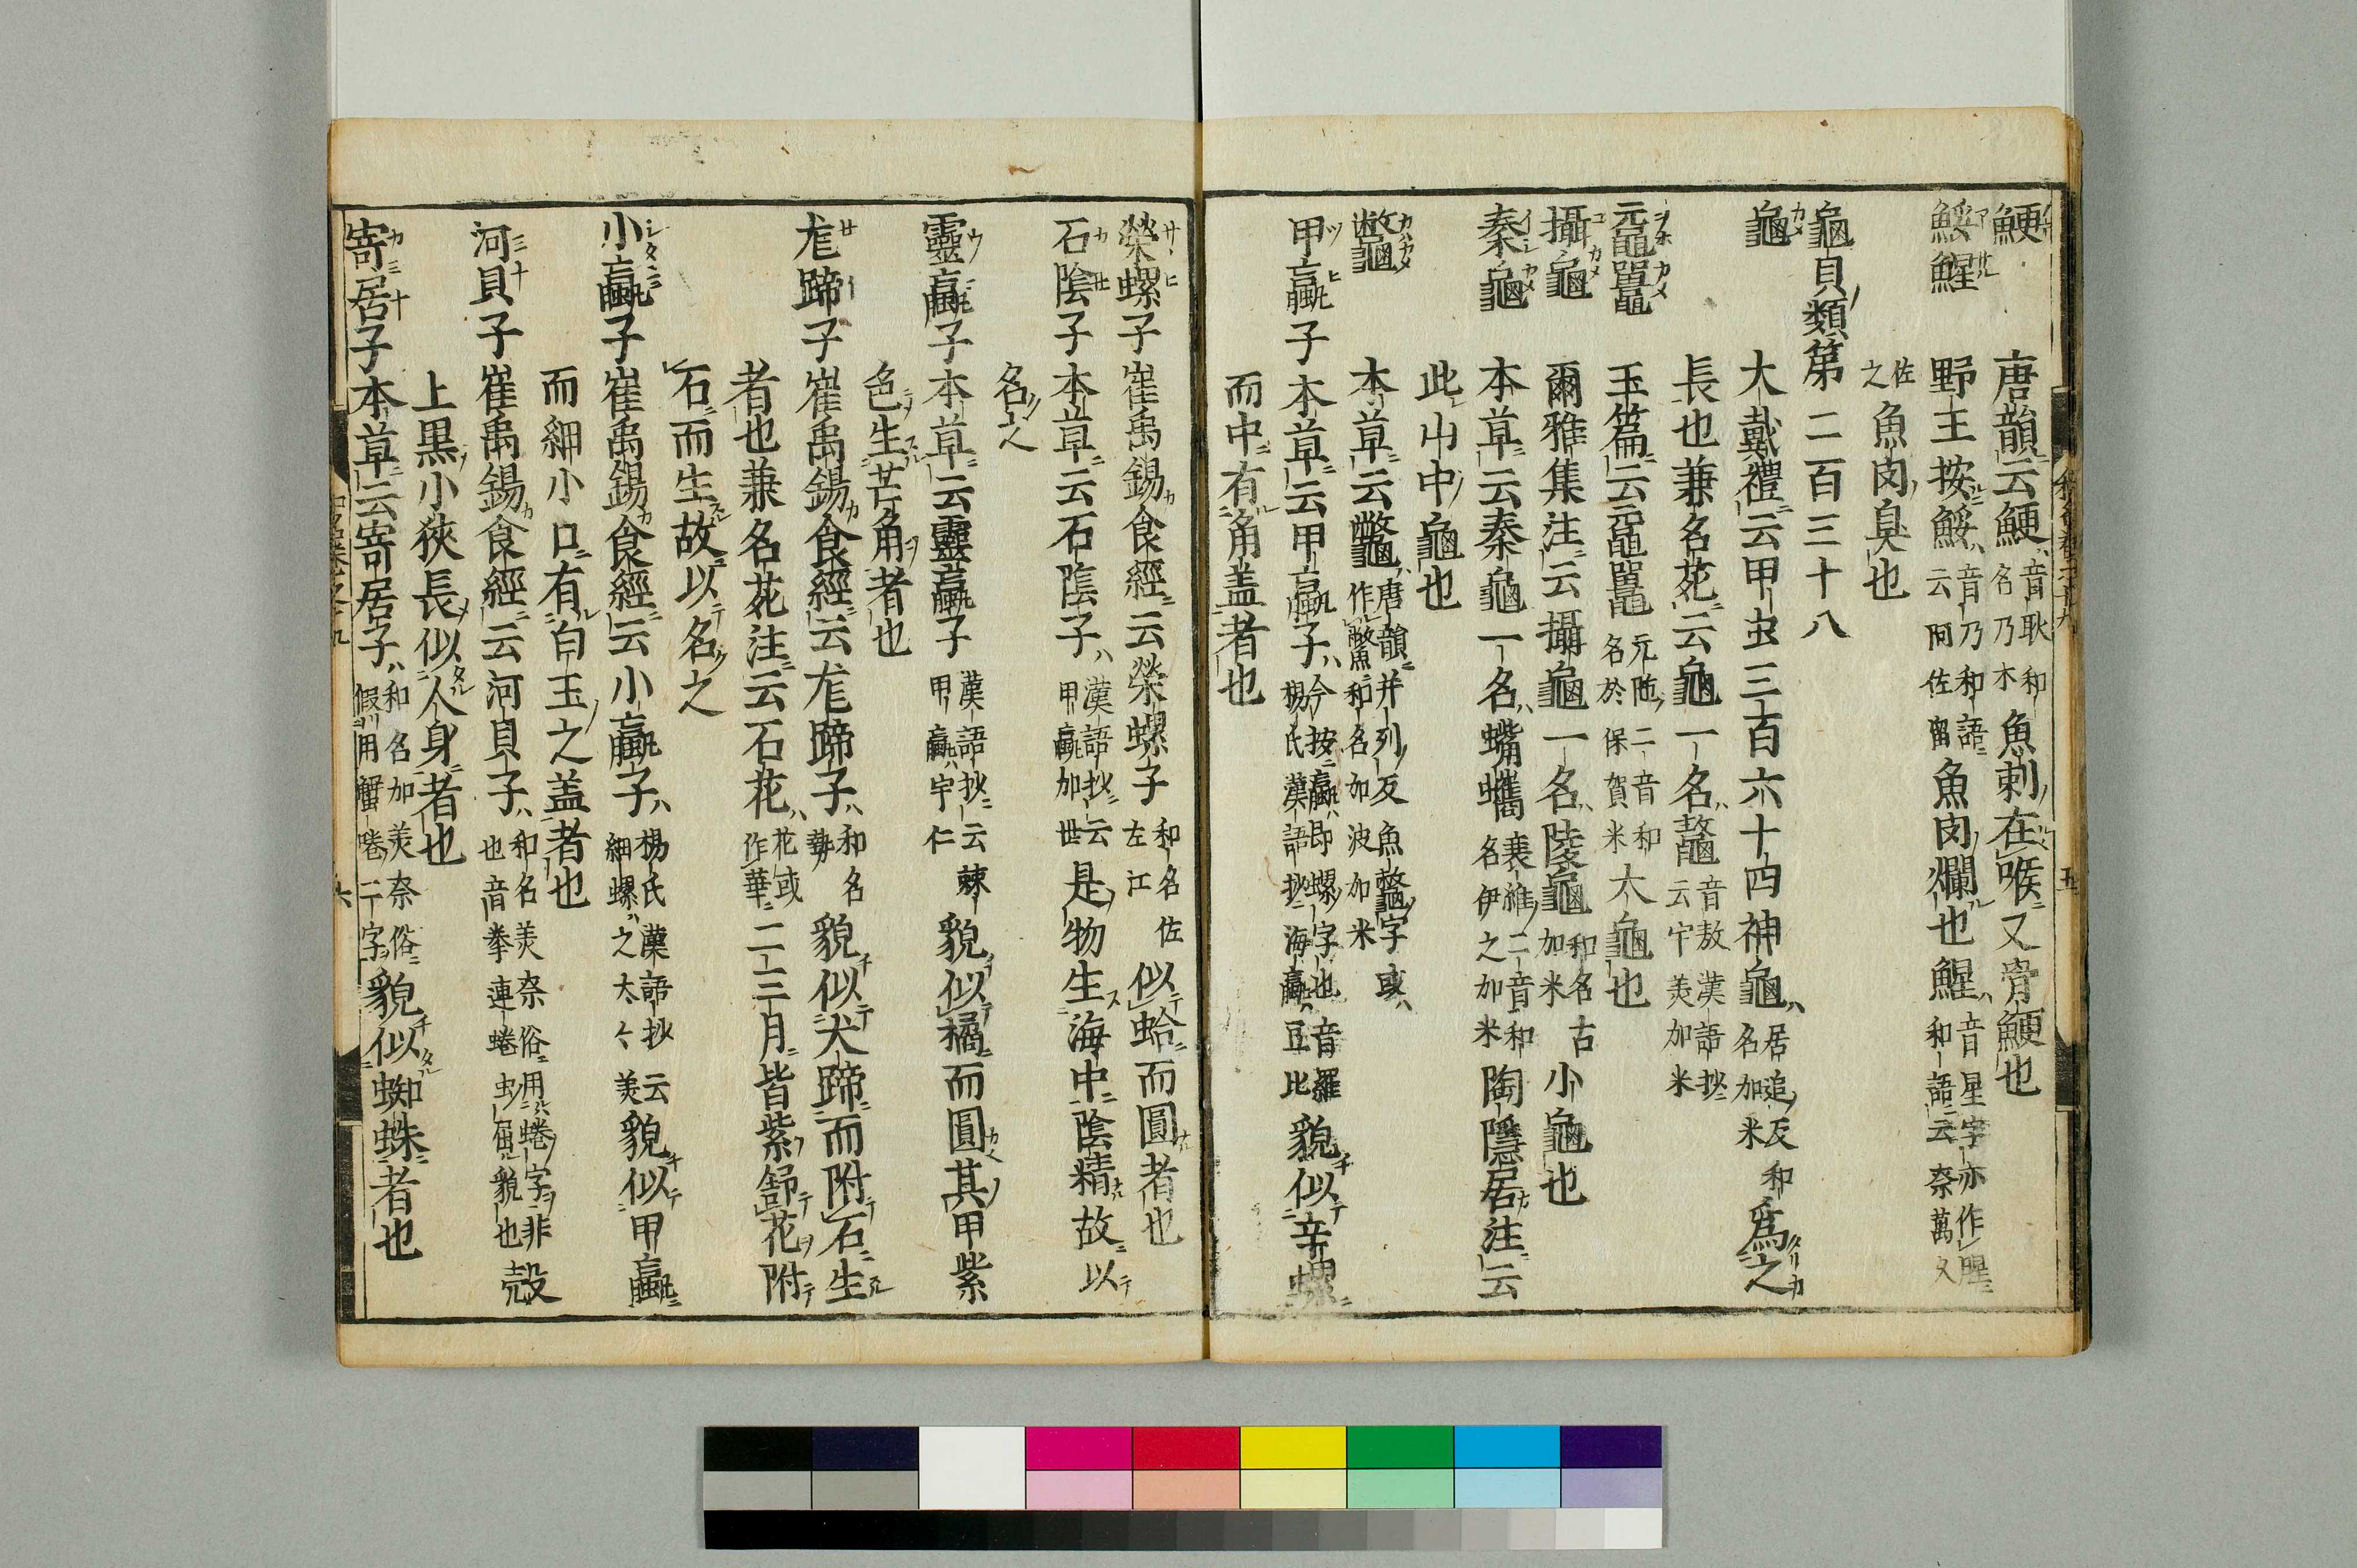 鯁 唐韻云鯁音耿和名乃木魚刺在喉又骨鯁也
鮾鯹 野王按鮾音乃和語云阿佐留魚肉爛也鯹音星字亦作腥和語云奈萬久
佐之魚肉臭也
龜貝類第二百三十八
龜 大戴禮云甲虫三百六十四神龜居追反和名加米為之
長也兼名苑云龜一名鼇音敖漢語抄云宇美加米
元鼉 玉篇云元鼉元陁二音和名於保賀米大龜也
攝龜 爾雅集注云攝龜一名陵龜和名古加米小龜也
秦龜 本草云秦龜一名蟕蠵裹維二音和名伊之加米陶隱居注云
此山中龜也
鼈 本草云鼈唐韻并列反魚鼈字或作鱉和名加波加米
甲蠃子 本草云甲蠃子今按蠃即螺字也音羅楊氏漢語抄海蠃豆比貌似辛螺
而中有角盖者也
榮螺子 崔禹錫食經云榮螺子和名佐左江似蛤而圓者也
石陰子 本草云石陰子漢語抄云甲蠃加世是物生海中陰精故以
名之
靈蠃子 本草云靈蠃子漢語抄云棘甲蠃宇仁貌似橘而圓其甲紫
色生芒角者也
尨蹄子 崔禹錫食經云尨蹄子和名勢貌似犬蹄而附石生
者也兼名苑注云石花花或作華二三月皆紫舒花附
石而生故以名之
小蠃子 崔禹錫食經云小蠃子楊氏漢語抄云細螺之太々美貌似甲蠃
而細小口有白玉之盖者也
河貝子 崔禹錫食經云河貝子和名美奈俗用蜷字非也音拳連蜷虫屈貌也殻
上黒小狹長似人身者也
寄居子 本草云寄居子和名加美奈俗假用蟹蜷二字貌似蜘蛛者也